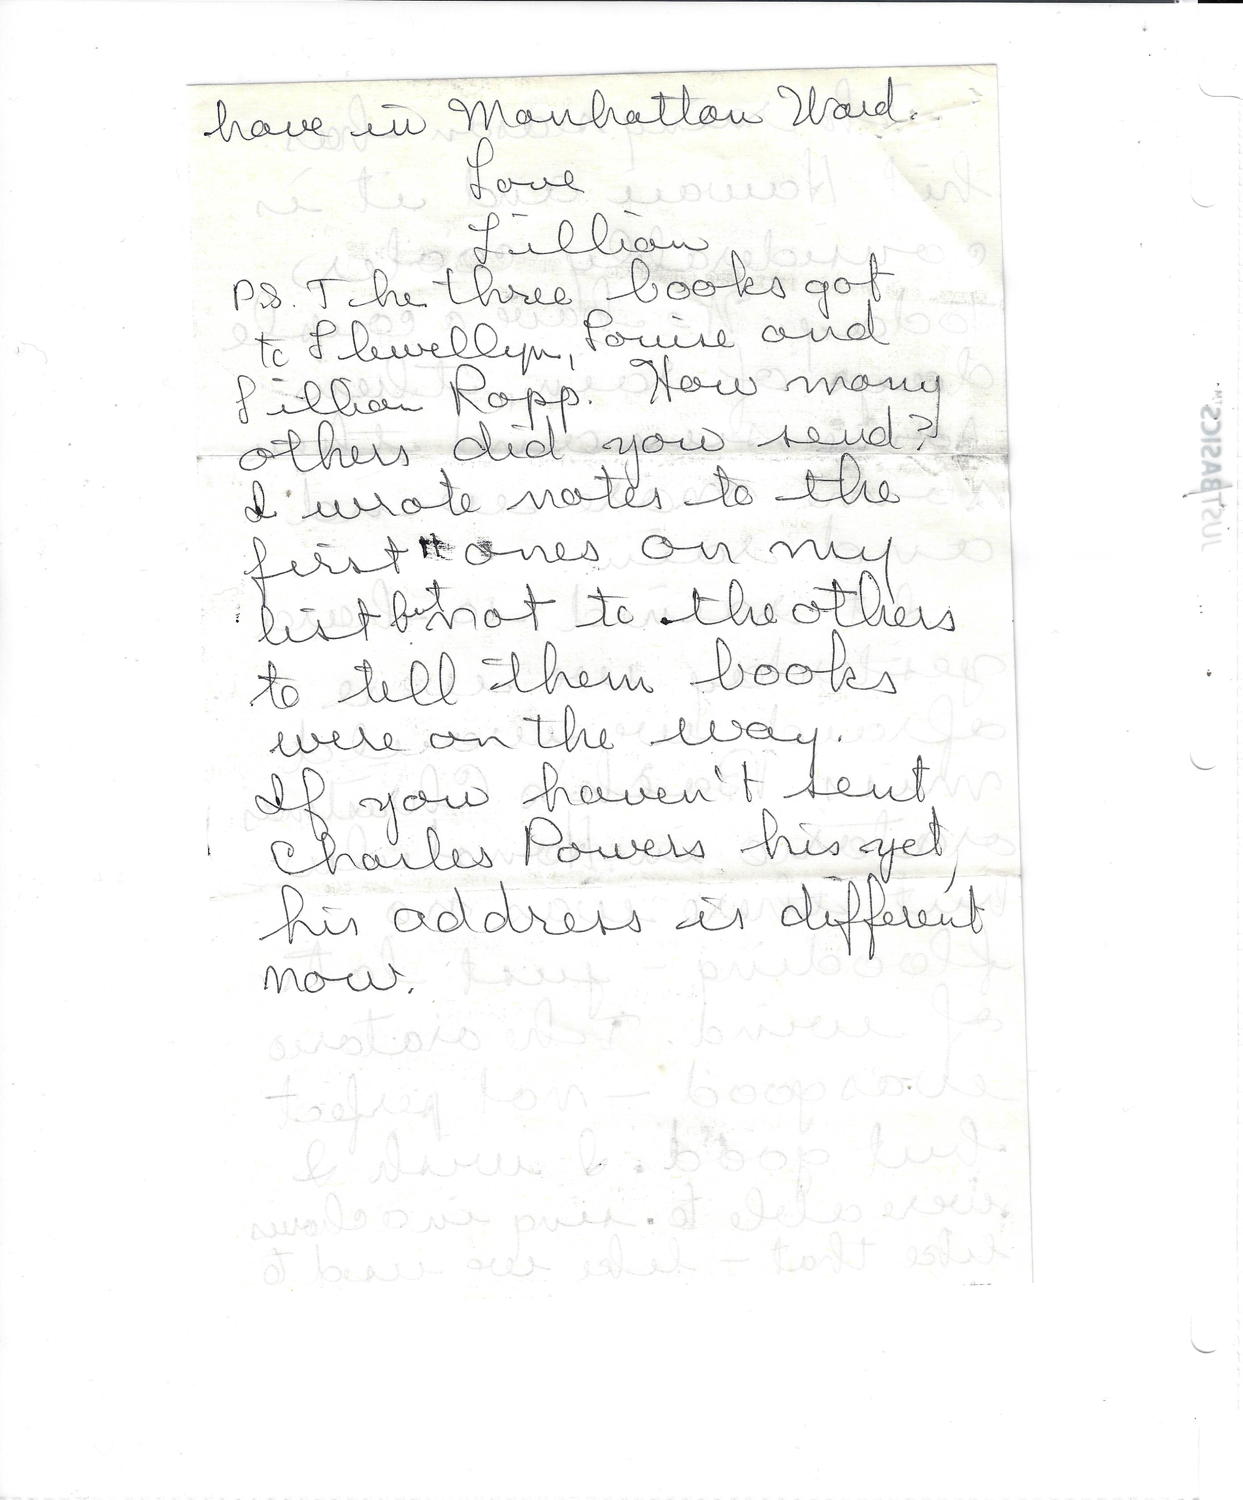 have in Manhattan Ward.
Love
Lillian
P.S. The three books got
to Llewellyn, Louise and
Lillian Ropp. How many
others did you send?
I wrote notes to the
first ones on my
list but not to the others
to tell them books
were on the way.
If you haven't sent
Charles Powers his yet,
his address is different
now.
JUSTBASICS™